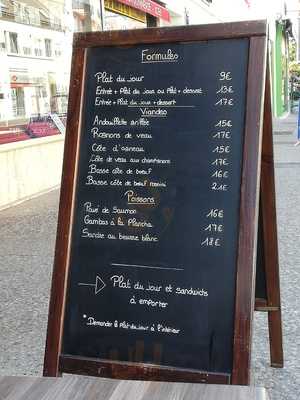 Formules
Plat du jour 9€
Entrée + Plat du jour ou Plat + dessert 13€
Entrée + Plat du jour + dessert 17€
Viandes
Andouillette grillée 15€
Rognons de veau 17€
Côte d'agneau 15€
Côte de veau aux champignons 17€
Basse côte de bœuf 16€
Basse côte de bœuf rossini 21€
Poissons
Pavé de Saumon 16€
Gambas à la Plancha 17€
Sandre au beurre blanc 18€
Plat du jour et sandwichs
à emporter
*Demander le plat du jour à l'intérieur